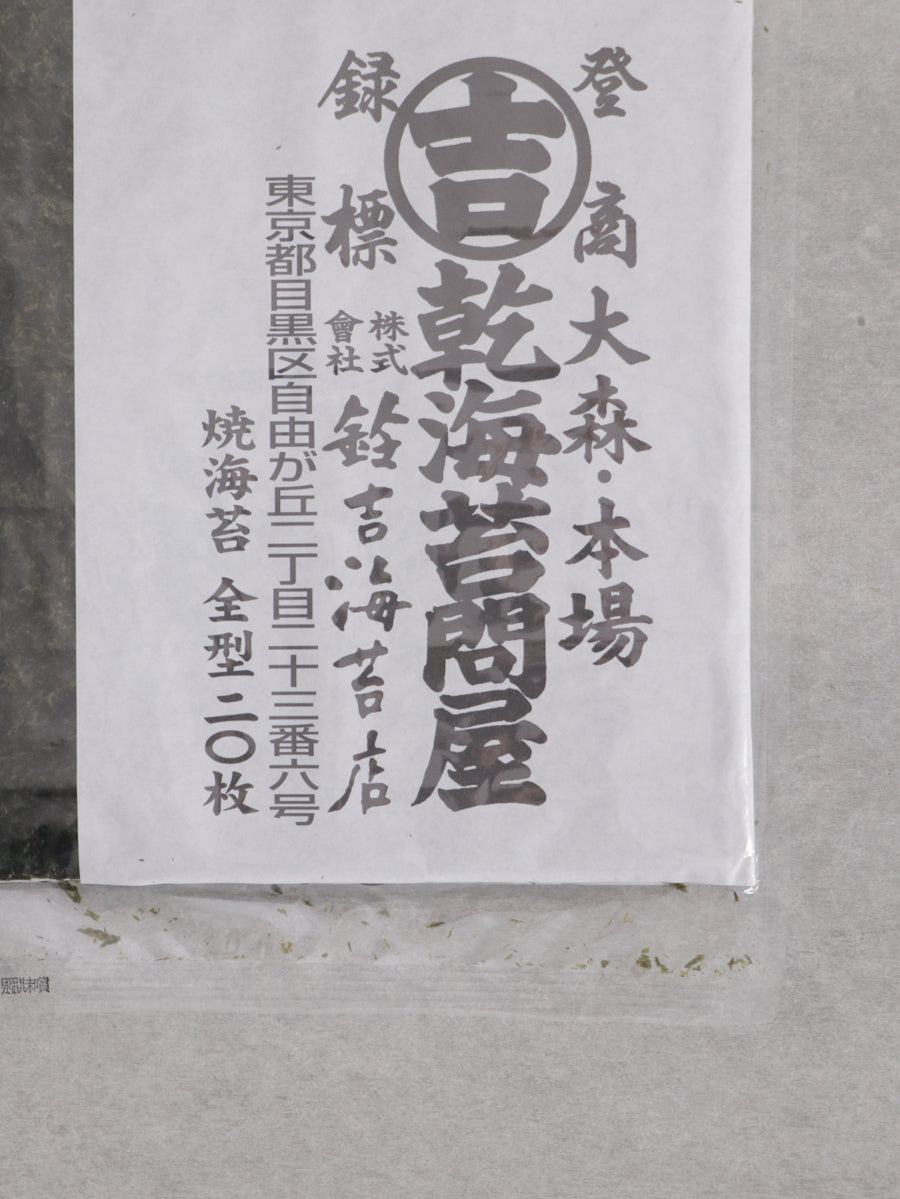 登録
商標
大森・本場
吉 乾海苔問屋
株式會社 銓吉海苔店
東京都目黒区自由が丘二丁目二十三番六号
焼海苔 全型二〇枚